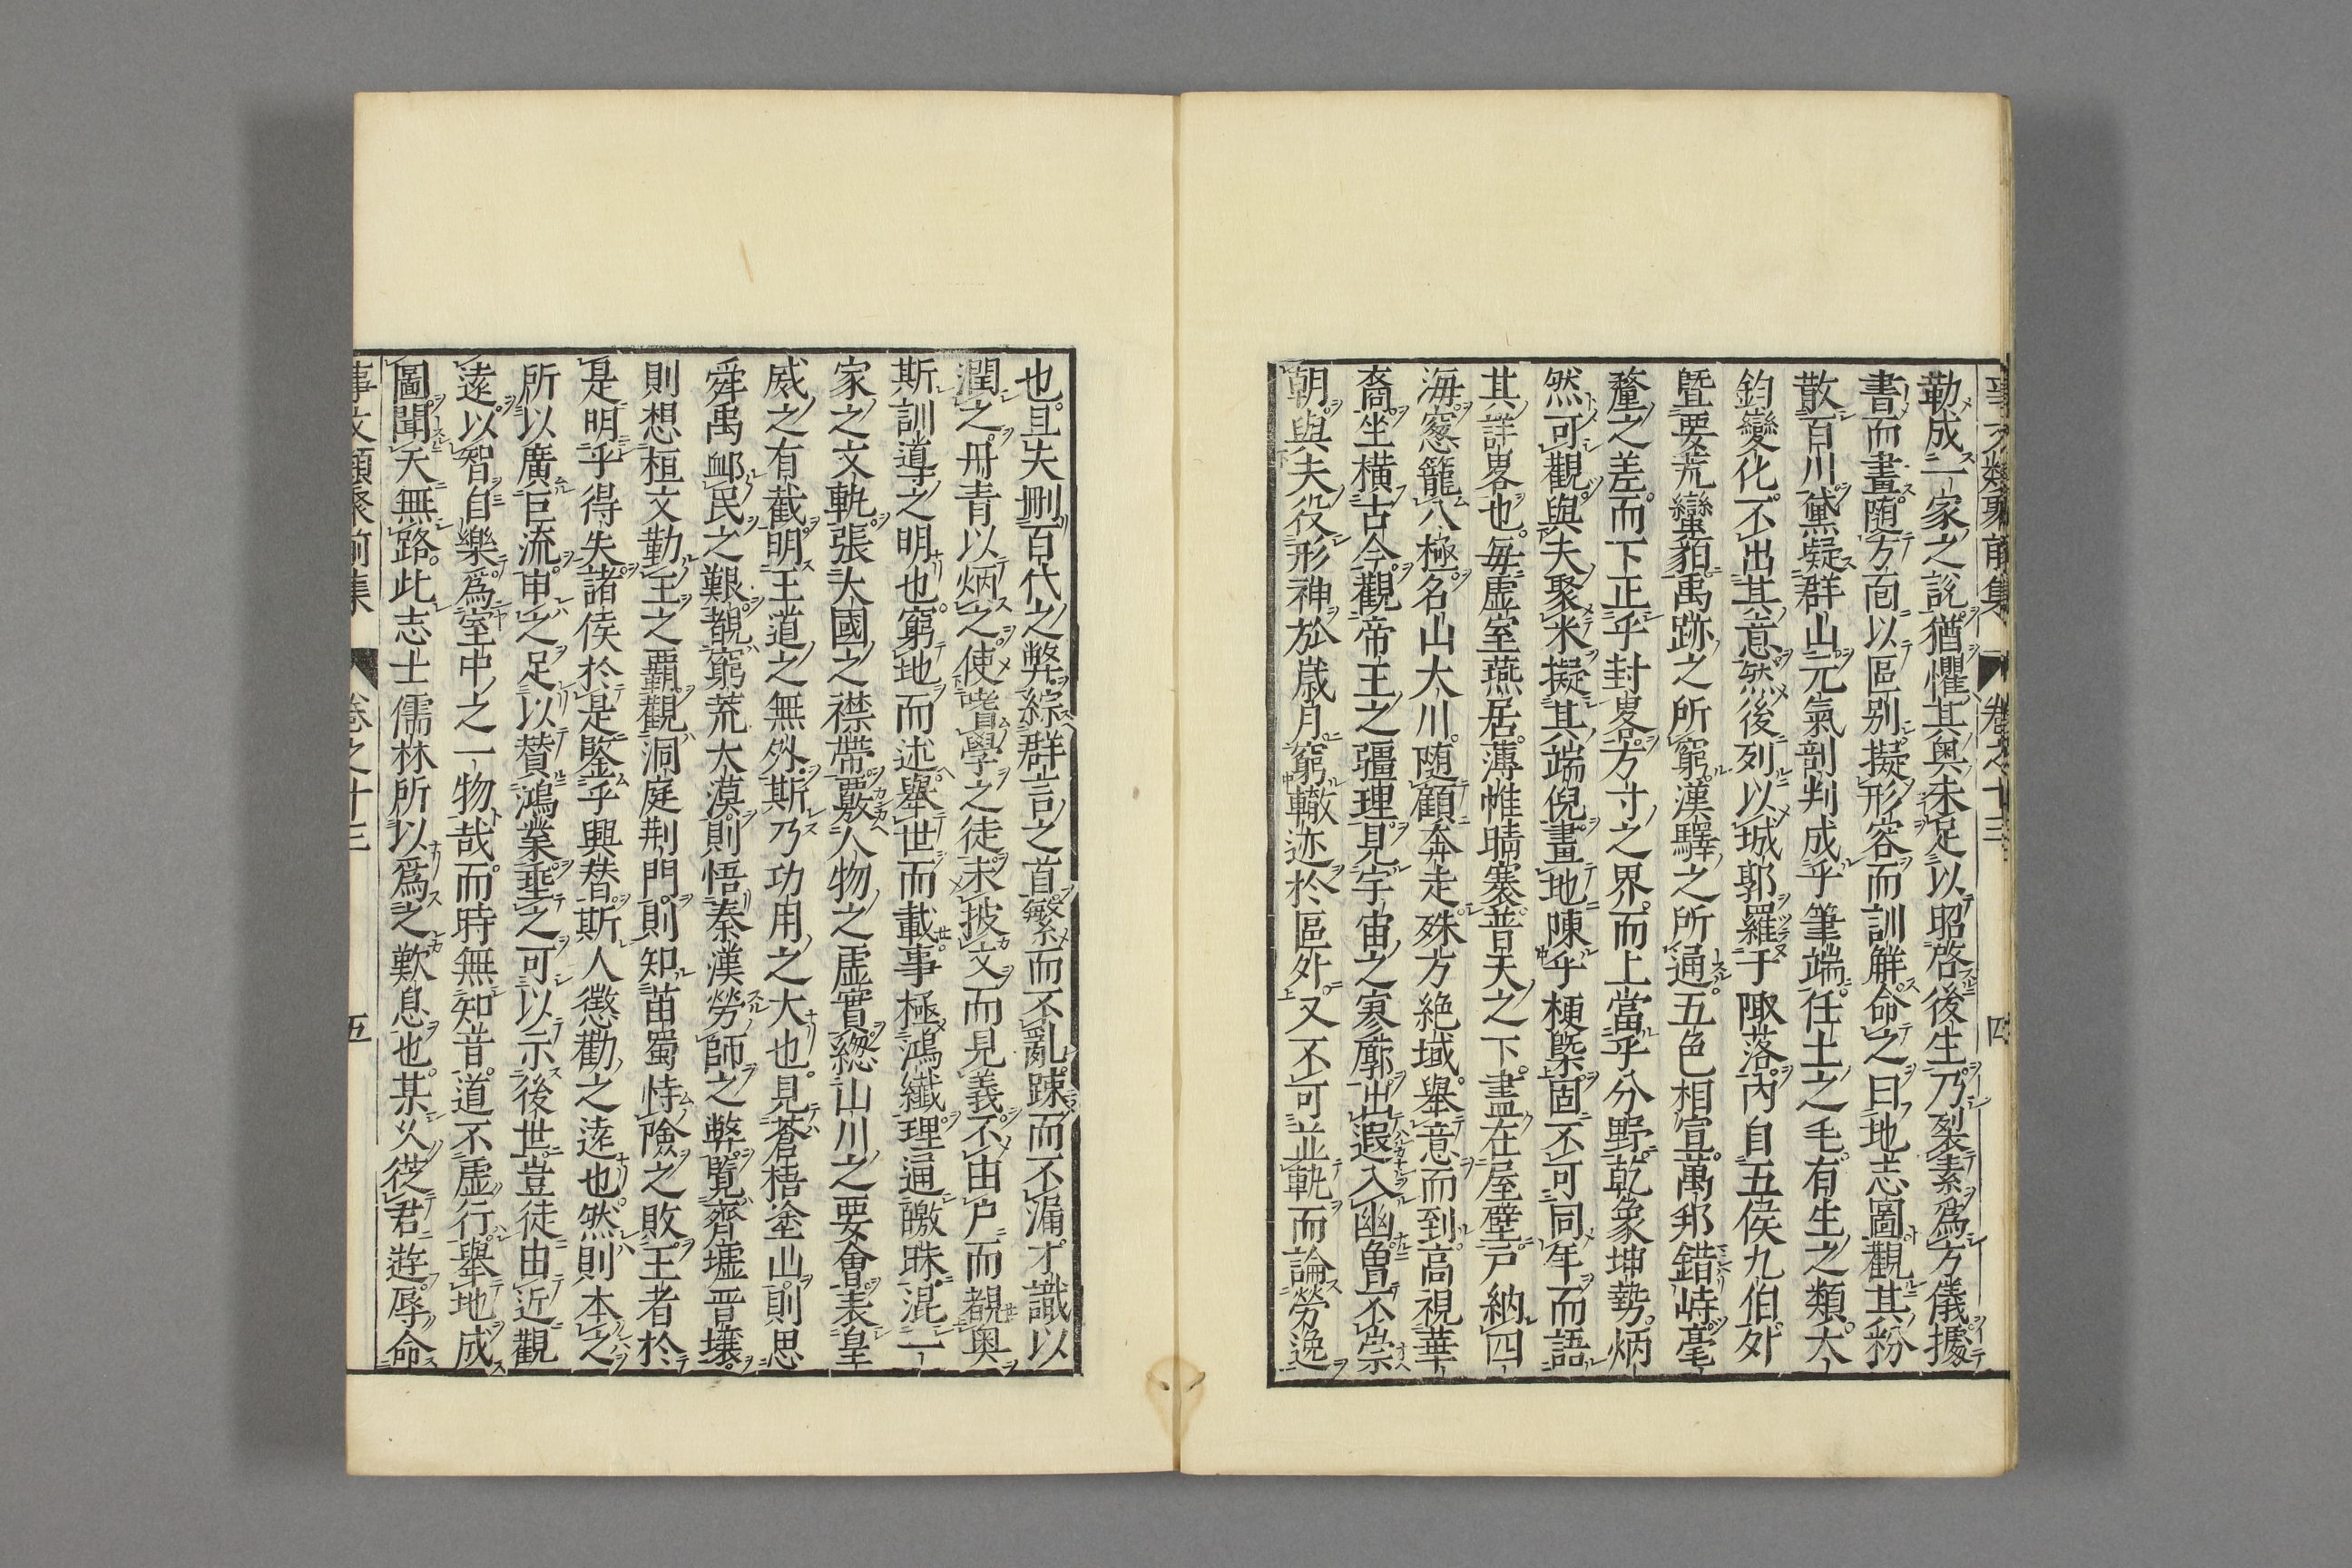 事文類聚前集 卷之十三 四
勒成一家之說猶懼其奧未足以昭啓後生乃裂素爲方儀據
書而畫隨方面以區別擬形容而訓解命之曰地志圖觀其粉
散百川黛凝群山元氣剖判成乎筆端任土之毛有生之類大
鈞變化不出其意然後列以城郭羅于陬落內自五侯九伯外
曁要荒蠻貊禹跡之所窮漢驛之所通五色相宣萬邦錯峙毫
釐之差而下正乎封畧方寸之界而上當乎分野乾象坤勢炳
然可觀與夫聚米擬其端倪畫地陳乎梗槩固不可同年而語
其詳畧也每虛室燕居薄帷晴褰普天之下盡在屋壁戶納四
海窓籠八極名山大川隨顧奔走殊方絶域舉意而到高視華
裔坐橫古今觀帝王之疆理見宇宙之寥廓出遐入幽曾不崇
朝與夫役形神於歲月窮轍迹於區外又不可並軌而論勞逸
也且夫刪百代之弊綜群言之首繁而不亂踈而不漏才識以
潤之丹青以炳之使嗜學之徒未披文而見義不由戶而覩奥
斯訓導之明也窮地而述舉世而載事極鴻纖理逼皦昧混一
家之文軌張大國之襟帶覈人物之虛實總山川之要會表皇
威之有截明王道之無外斯乃功用之大也見蒼梧塗山則思
舜禹䘏民之艱覩窮荒大漠則悟秦漢勞師之弊覽齊墟晋壤
則想桓文勤王之霸觀洞庭荆門則知苗蜀恃險之敗王者於
是明乎得失諸侯於是鑒乎興替斯人懲勸之遠也然則本之
所以廣巨流申之足以贊鴻業垂之可以示後世豈徒由近觀
遠以智自樂爲室中之一物哉而時無知音道不虛行舉地成
圖聞天無路此志士儒林所以爲之歎息也某乆從君遊辱命
事文類聚前集 卷之十三 五